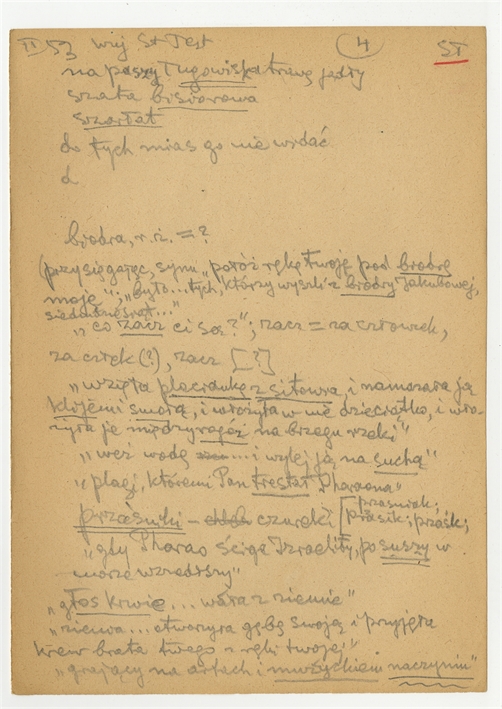 II 53 Wuj St Test 4 ST
na paszy ługowiska trawę jadły
szata bisiorowa
szarłat
do tych mias go nie widać
d
biodra, r. ż. = ?
(przysięgając, synu „połóż rękę twoję pod biodrę
moję"; „było... tych, którzy wyszli z biodry Jakubowej,
siedmdziesiąt..."
„co zacz ci są?"; zacz = za człowiek,
za człek (?), zacz [?]
„wzięła plecionkę z sitowia, i namazała ją
klijem i smołą, i włożyła w nię dzieciątko, i wło-
żyła je między rogoż na brzegu rzeki"
„weź wodę ... i wylej ją na suchą"
„plagi, któremi Pan trestał Pharaona"
przaśniki – czureki [przaśniak;
przasik; przaśk;
„gdy Pharao ściga Izraelity, po suszy w
morze wszedszy"
„głos krwie ... woła z ziemie"
„ziemia ... otworzyła gębę swoją i przyjęła
krew brata twego z ręki twojej"
„grający na arfach i muzyckiem naczyniu"